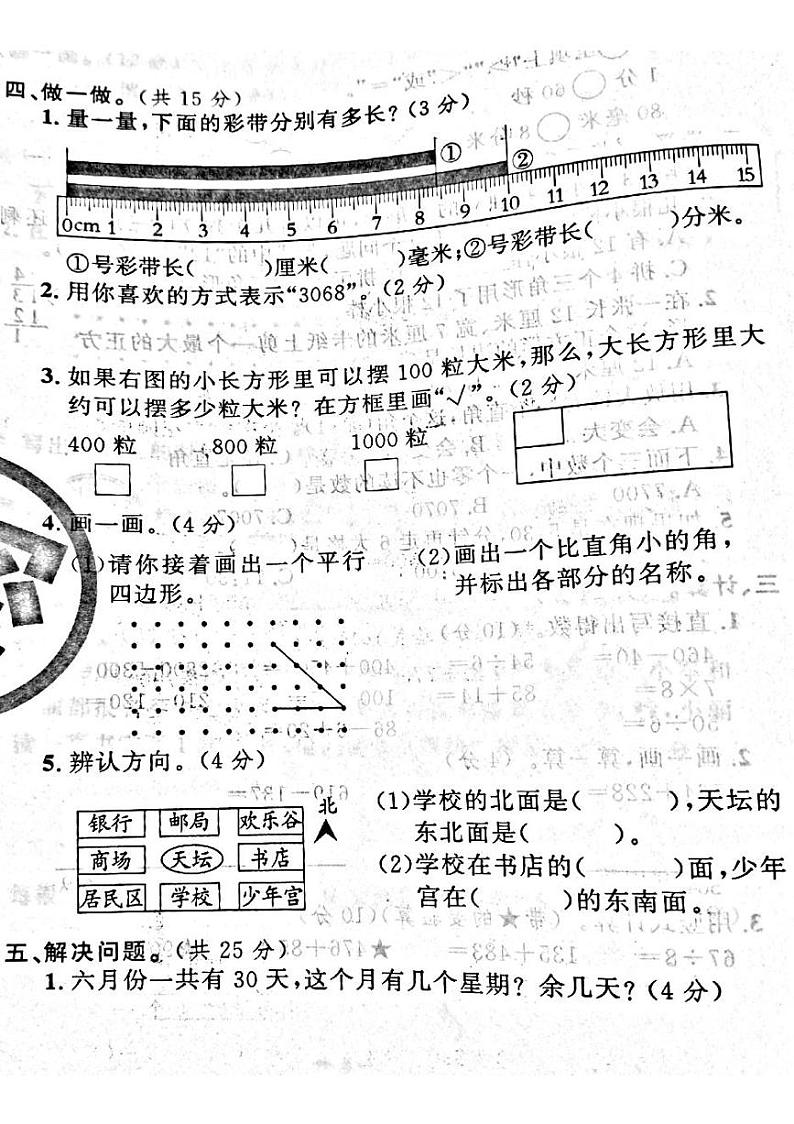 四、做一做。(共 15 分)
1. 量一量,下面的彩带分别有多长?(3 分)
①
②
0cm 1 2 3 4 5 6 7 8 9 10 11 12 13 14 15
①号彩带长( )厘米( )毫米;②号彩带长( )分米。
2. 用你喜欢的方式表示“3068”。(2 分)
3. 如果右图的小长方形里可以摆 100 粒大米,那么,大长方形里大
约可以摆多少粒大米? 在方框里画“√”。(2 分)
400 粒 800 粒 1000 粒
4. 画一画。(4 分)
(1)请你接着画出一个平行
四边形。
(2)画出一个比直角小的角,
并标出各部分的名称。
5. 辨认方向。(4 分)
北
银行 邮局 欢乐谷
商场 天坛 书店
居民区 学校 少年宫
(1)学校的北面是( ),天坛的
东北面是( )。
(2)学校在书店的( )面,少年
宫在( )的东南面。
五、解决问题。(共 25 分)
1. 六月份一共有 30 天,这个月有几个星期? 余几天?(4 分)